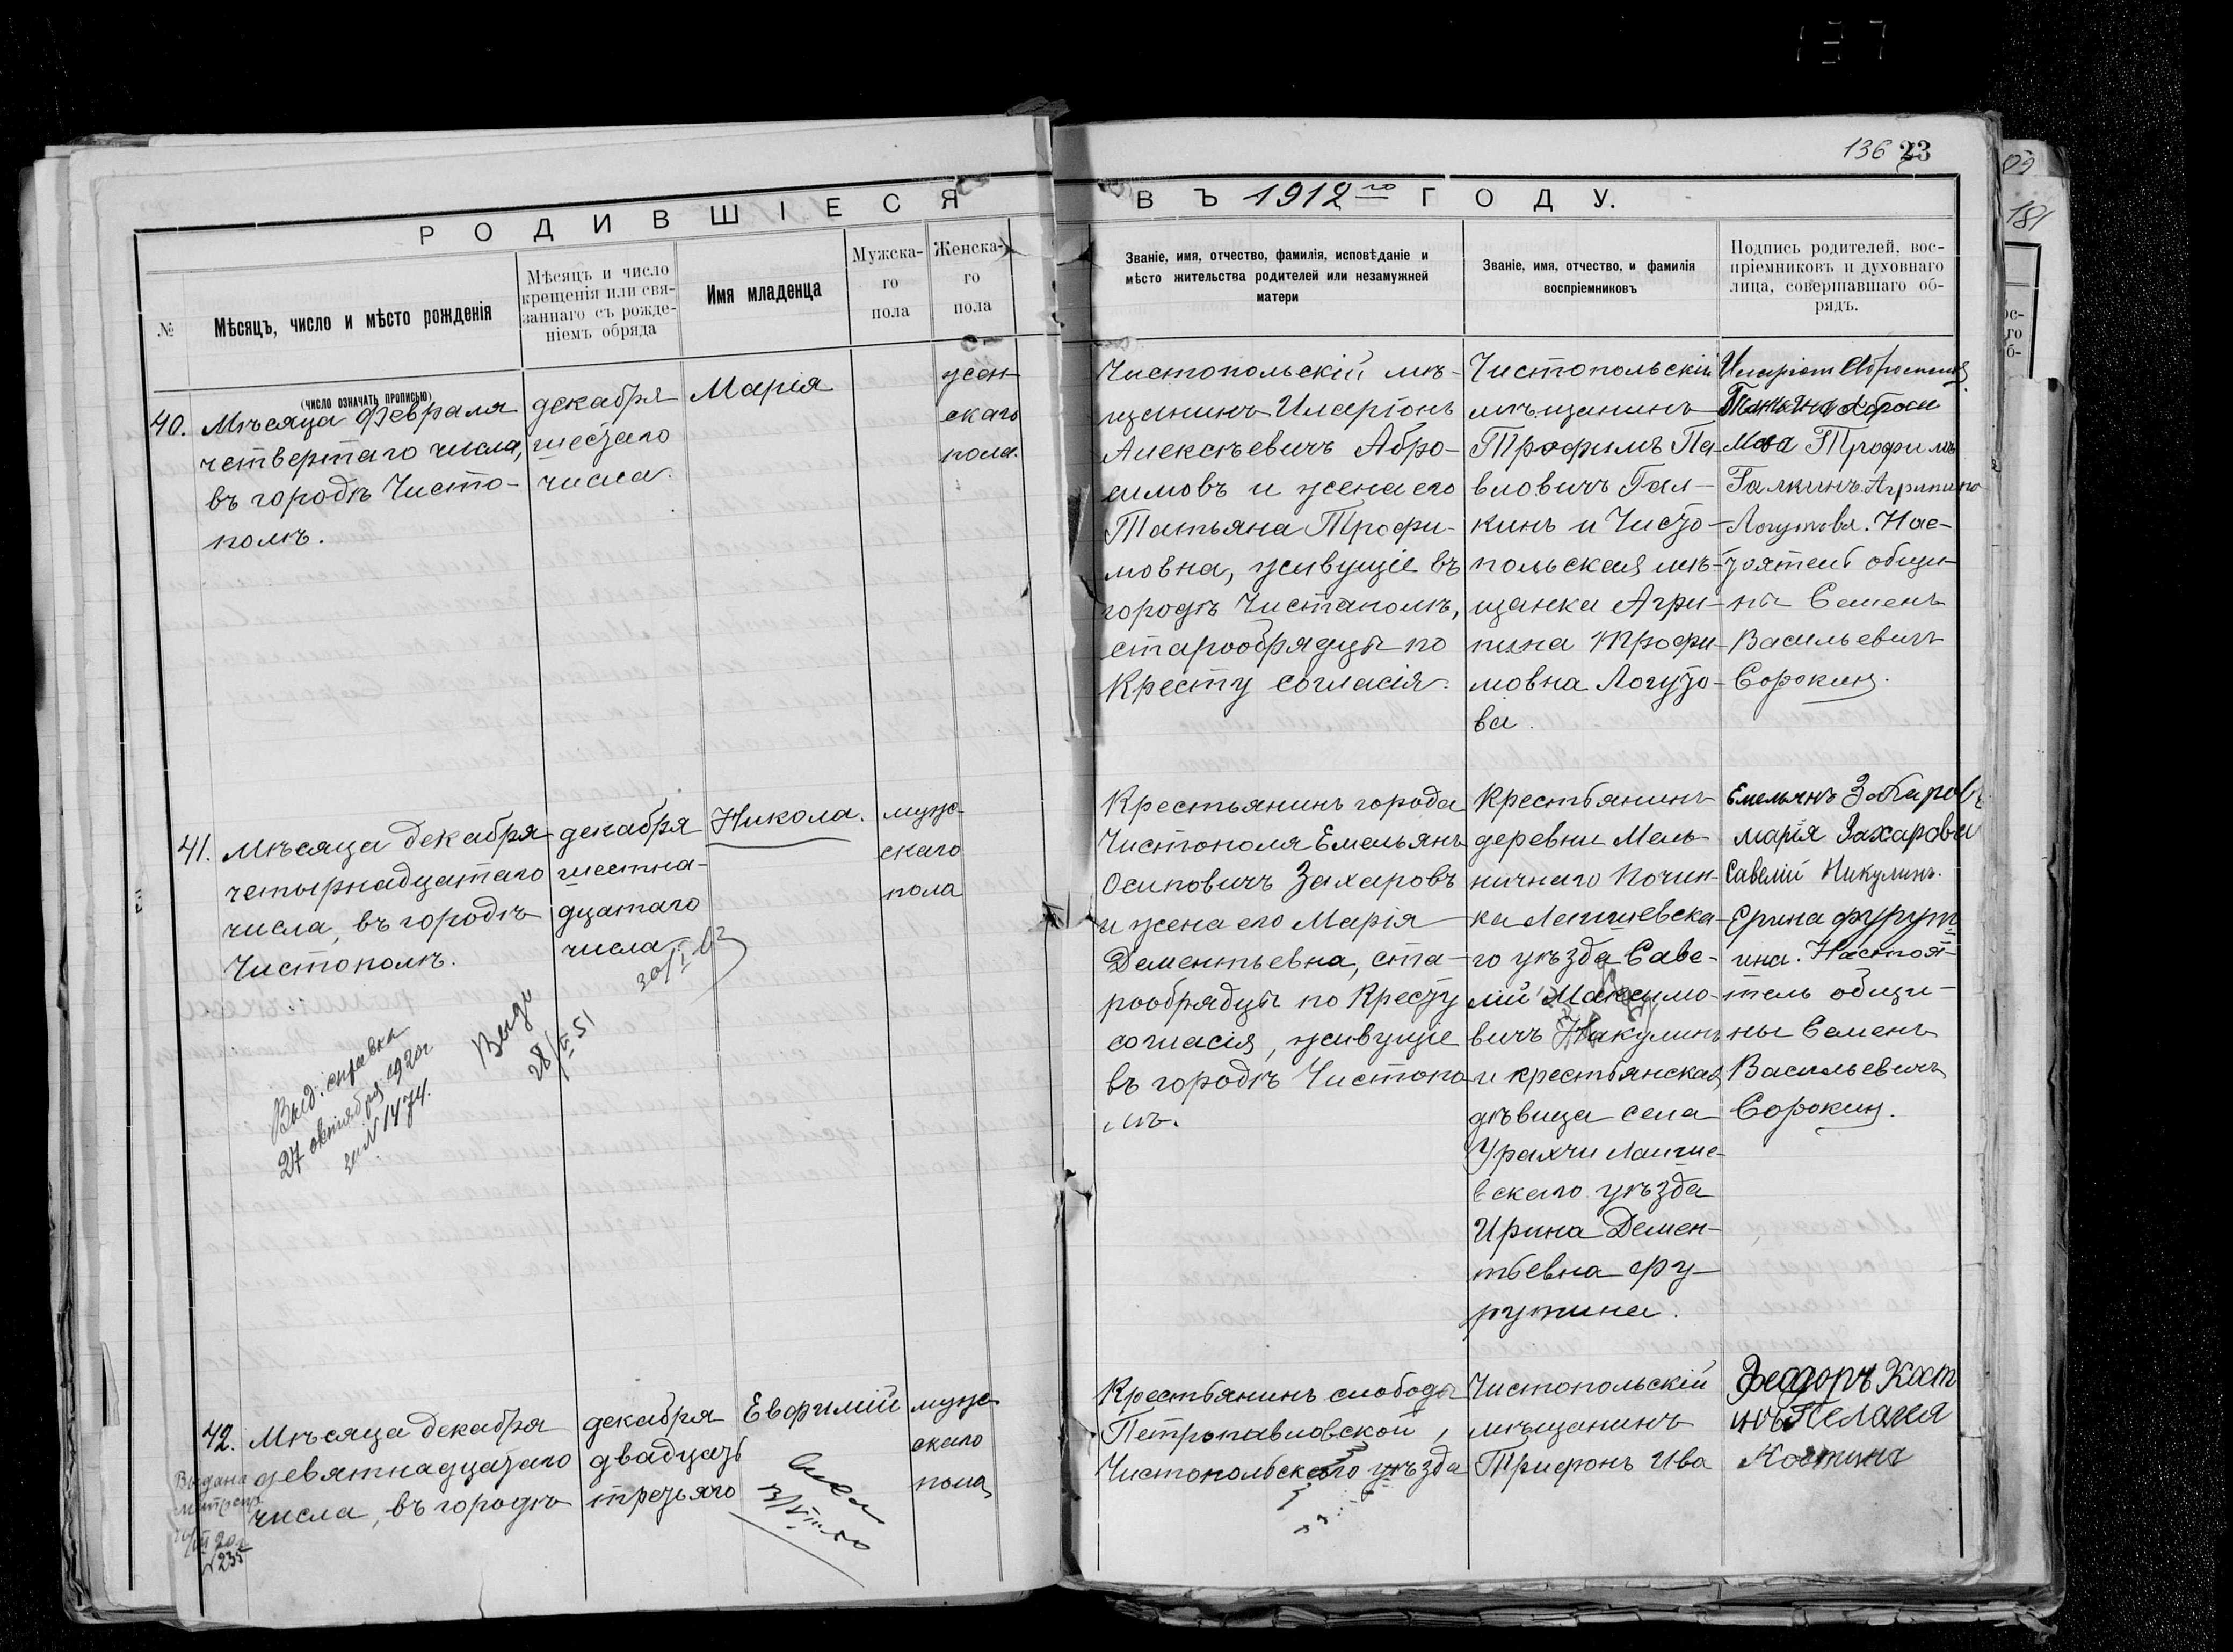 136 23
РОДИВШІЕСЯ
ВЪ 1912го ГОДУ.
№
Мѣсяцъ, число и мѣсто рожденія
(число означать прописью)
Мѣсяцъ и число
крещенія или свя-
заннаго съ рожде-
ніемъ обряда
Имя младенца
Мужска-
го
пола
Женска-
го
пола
Званіе, имя, отчество, фамилія, исповѣданіе и
мѣсто жительства родителей или незамужней
матери
Званіе, имя, отчество, и фамилія
воспріемниковъ
Подпись родителей, вос-
пріемниковъ и духовнаго
лица, совершавшаго об-
рядъ.
40.
Мѣсяца февраля
четвертаго числа,
въ городѣ Чисто-
полѣ.
декабря
шестаго
числа.
Марія
жен-
скаго
пола.
Чистопольскій мѣ-
щанинъ Иларіонъ
Алексѣевичъ Абро-
симовъ и жена его
Татьяна Трофи-
мовна, живущіе въ
городѣ Чистаполѣ,
старообрядцы по
Кресту согласія.
Чистопольскій
мѣщанинъ
Трофимъ Па-
вловичъ Гал-
кинъ и Чисто-
польская мѣ-
щанка Агри-
пина Трофи-
мовна Логуто-
ва.
Иларіон
Татьяна Аброси
мова Трофимъ
Галкинъ. Агрипина
Логутова. Нас-
тоятель общи-
ны Семенъ
Васильевичъ
Сорокин.
41.
Мѣсяца декабря
четырнадцатаго
числа, въ городѣ
Чистополѣ.
декабря
шестна-
дцатаго
числа
Никола.
мужс-
скаго
пола
Крестьянинъ города
Чистополя Емельянъ
Осиповичъ Захаровъ
и жена его Марія
Дементьевна, ста-
рообрядцы по Кресту
согласія, живущіе
въ городѣ Чистопо
лѣ.
Крестьянинъ
деревни Мель-
ничнаго Почин-
ка Лаишевска-
го уѣзда Саве-
лій Максимо-
вичъ Никулинъ
и крестьянская
дѣвица села
Урахчи Лаише-
вскаго уѣзда
Ирина Демен-
тьевна Фу-
рутина.
Емельянъ Захаровъ
марія Захарова
Савелій Никулинъ.
Ерина фурут
ина. Настоя-
тель общи-
ны Семенъ
Васильевичъ
Сорокин.
Выд. справка
27 октября 1920г
за N 1474.
Выд
28/ 51
30/I
42.
Мѣсяца декабря
девятнадцатаго
числа, въ городѣ
декабря
двадцать
третьяго
Евфимій
мужс
скаго
пола
Крестьянинъ слободы
Петропавловской,
Чистопольскаго уѣзда
Чистопольскій
мѣщанинъ
Трифонъ Ива
Феодоръ Кост
инъ Пелагея
Костина
Выдана
метрика
20
N 235
181